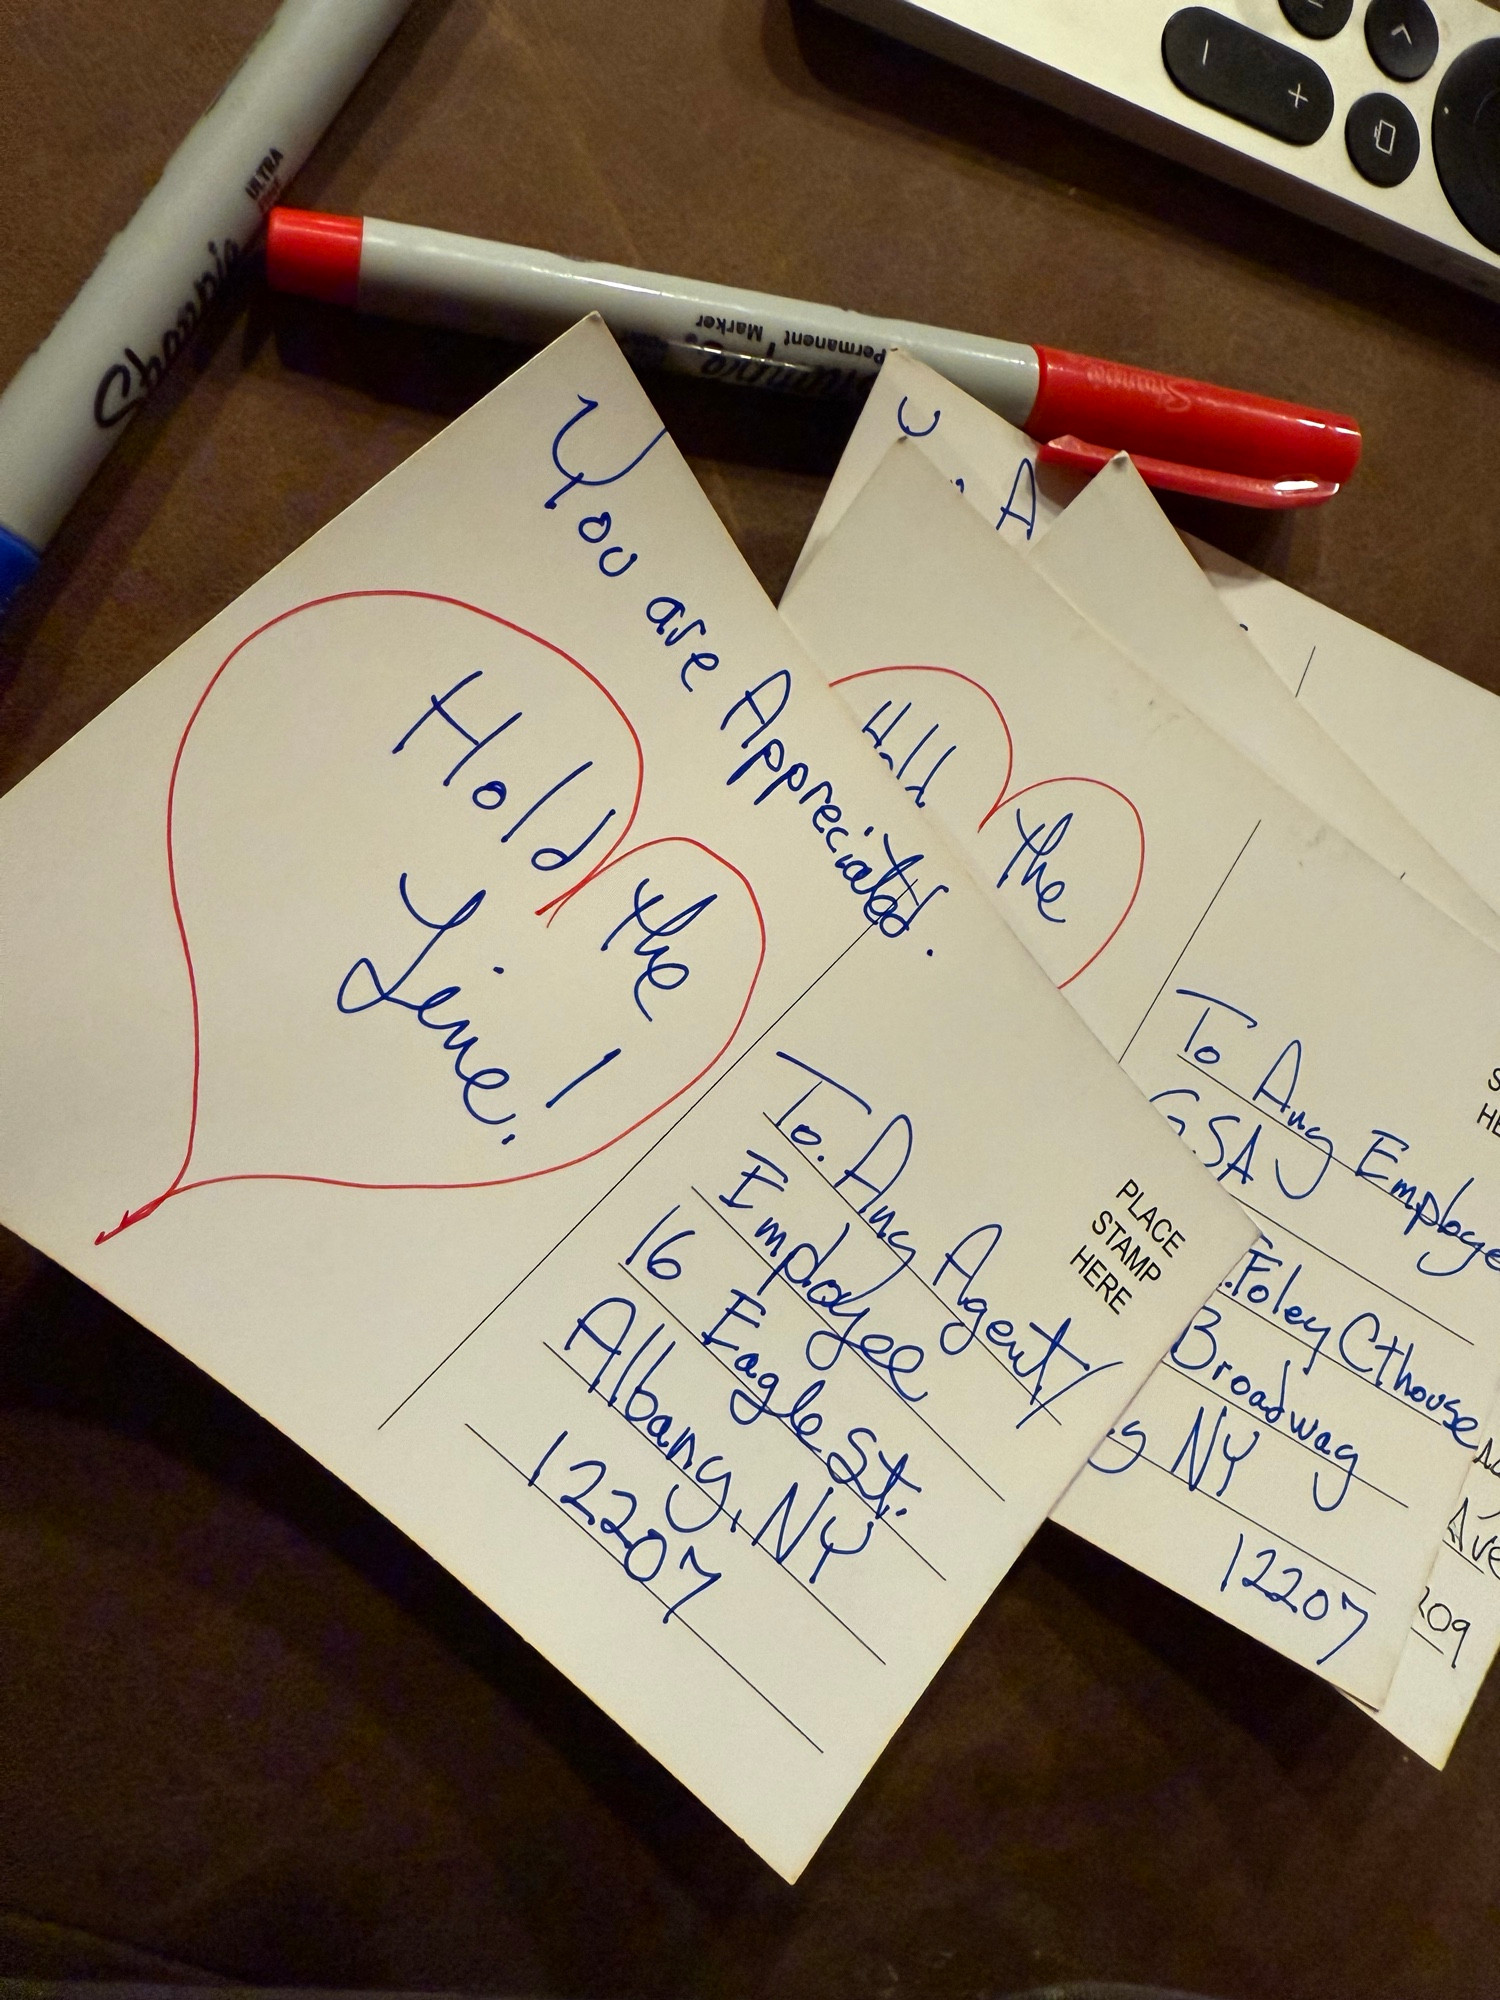 Sharpie
ULTRA
Sharpie
Permanent
Marker
Sharpie
You are Appreciated.
Hold the
Line!
To: Any Agent/
Employee
16 Eagle St.
Albany, NY
12207
PLACE
STAMP
HERE
Hold the
To Any Employee
GSA
Foley Cthouse
Broadway
NY
12207
A